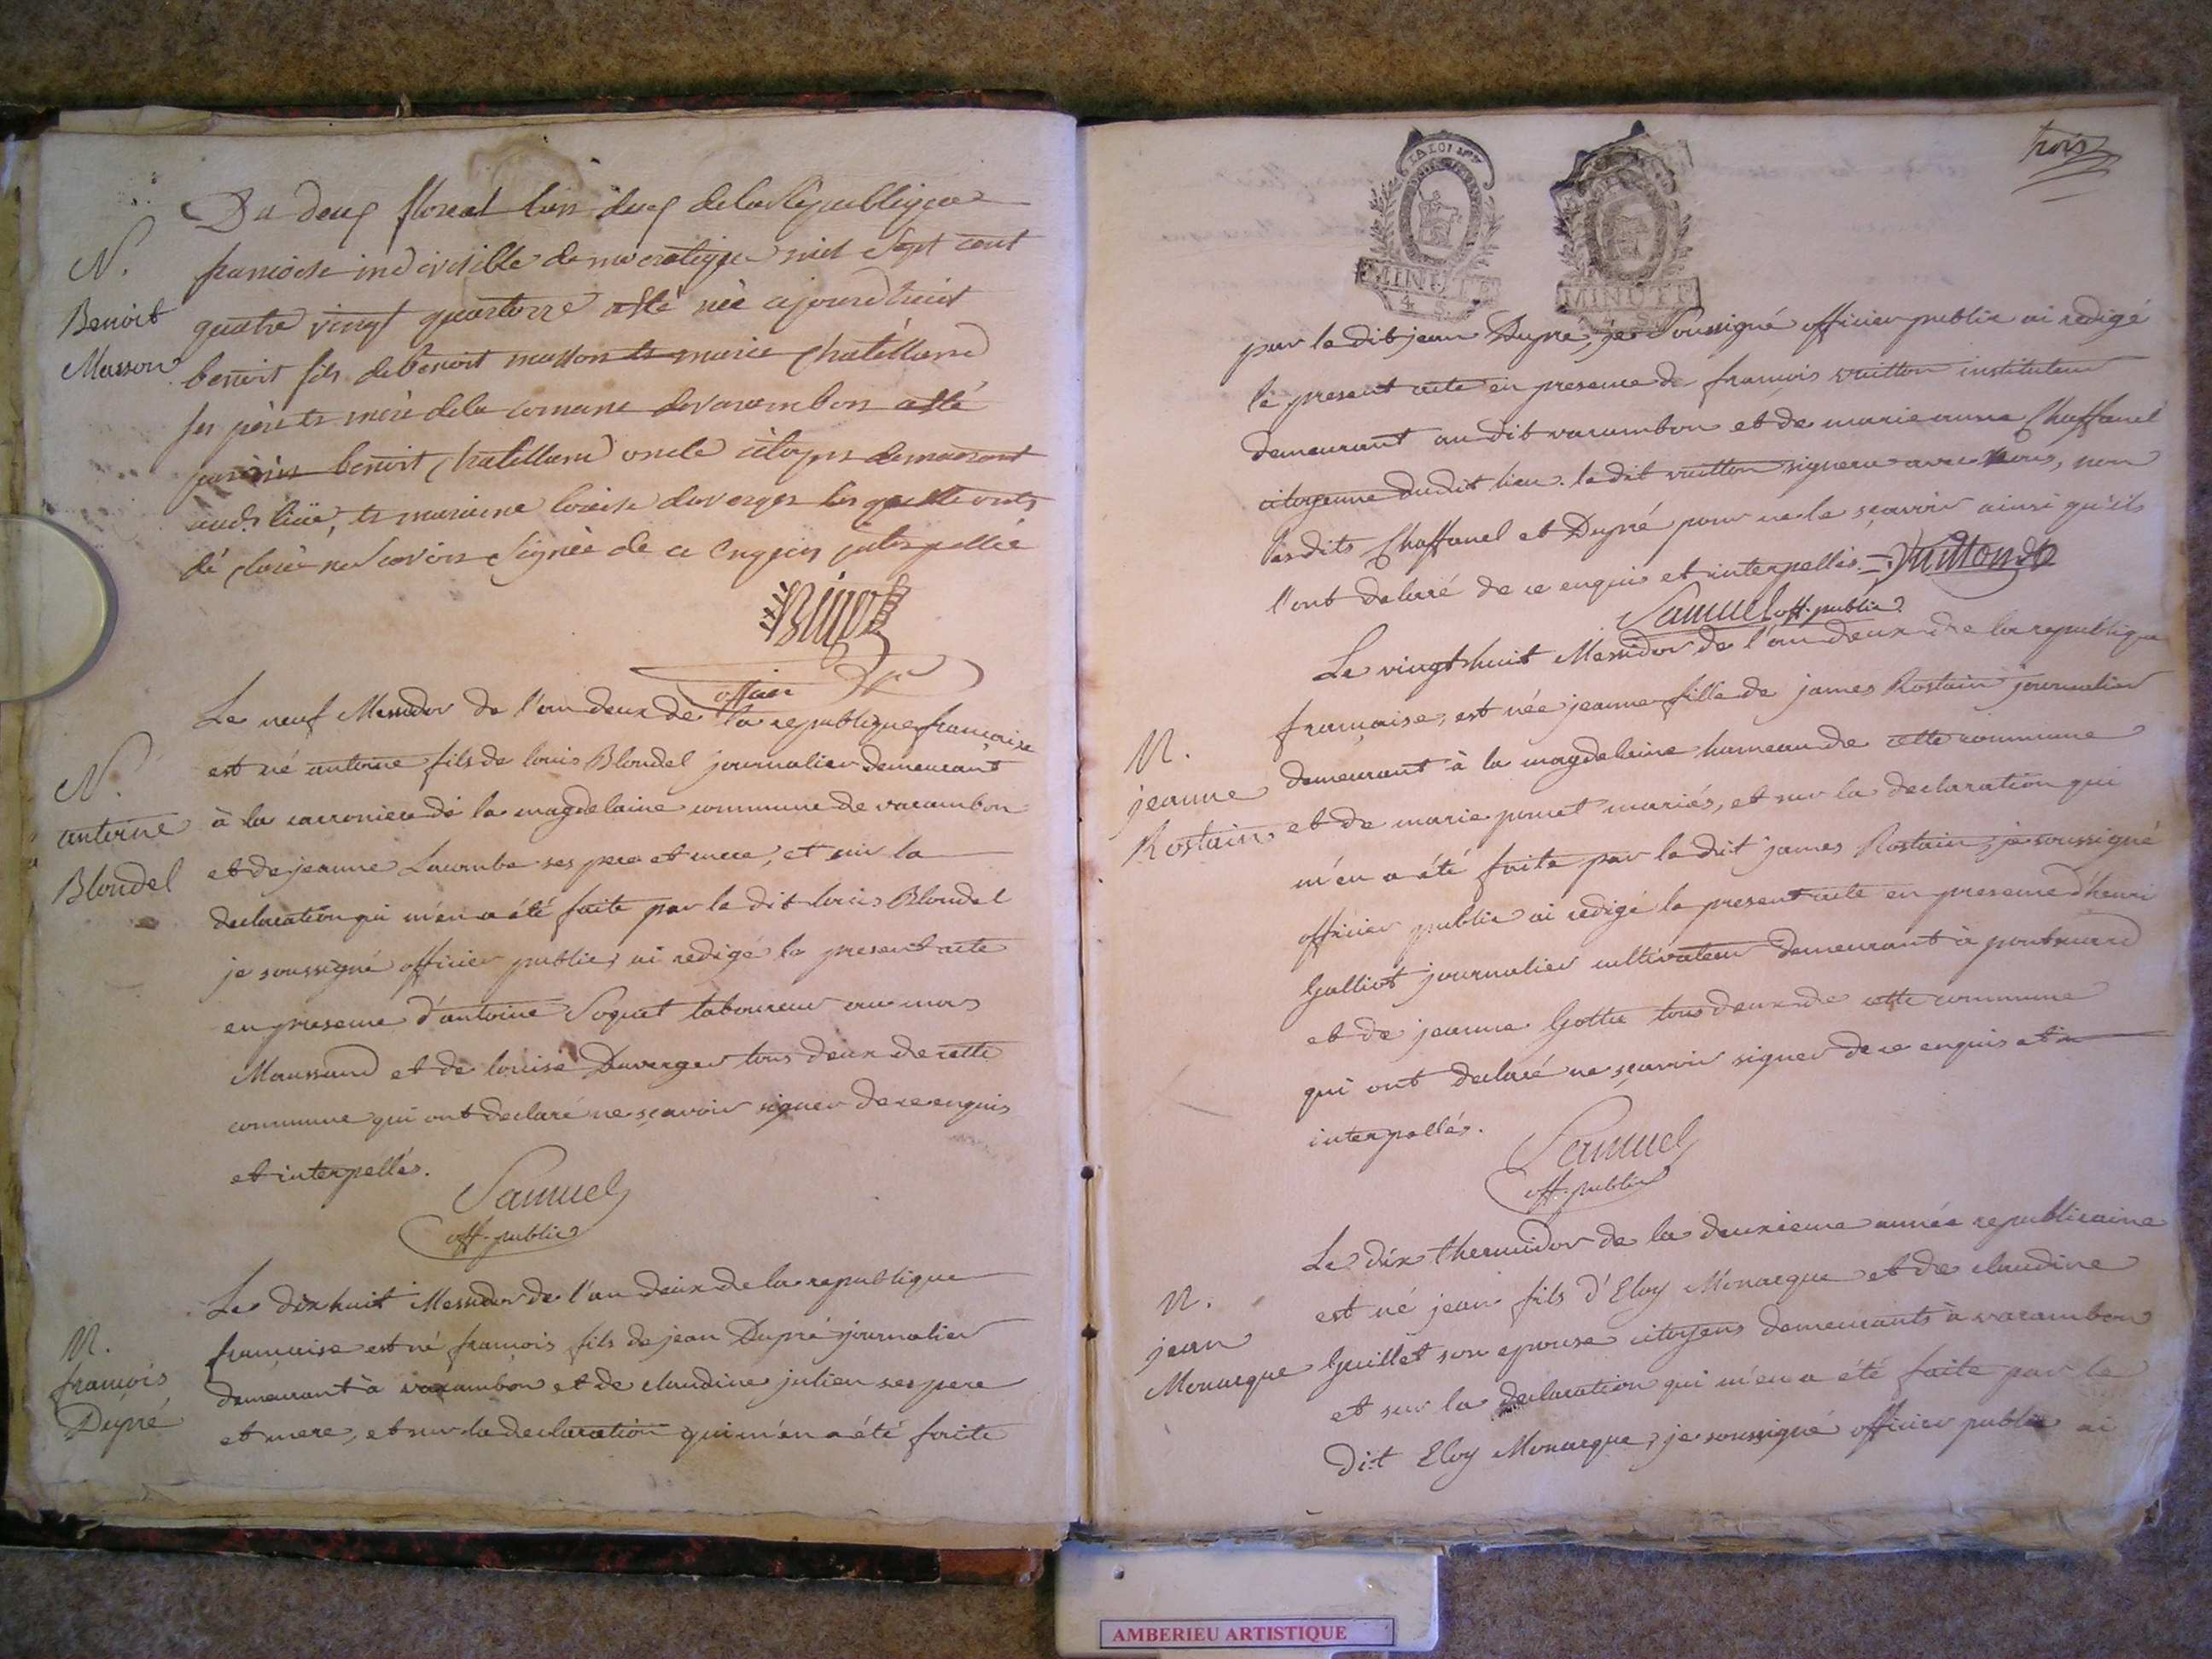 Du deux floreal lan deux de la Republique
francoise indivisible democratique mil sept cent
N.
Benoit
Masson
quatre vingt quatorze asté née ajourdhuit
benoit fils de benoit masson et marie chatelland
ses père et mère de la comune de varambon asté
parrin benoit chatelland oncle citoyen demeurant
aud. liüe, et maraine loüise duverger les quelle onts
dé claré ne savoir signée de ce enquis interpellée
officier
Le neuf Messidor de l'an deux de la republique française
N.
antoine
Blondel
est né antoine fils de louis Blondel journalier demeurant
à la carroniere de la magdelaine commune de varambon
et de jeanne Lacombe ses pere et mere, et sur la
declaration qui m'en a été faite par le dit louis Blondel
je soussigné officier public, ai redigé le present acte
en presence d'antoine Soquet laboureur au mas
Maussand et de louise Duverger tous deux de cette
commune qui ont declaré ne sçavoir signer de ce enquis
et interpellés.
Samuel
off. public
Le dix huit Messidor de l'an deux de la republique
N.
francois
Dupré
francaise est né francois fils de jean Dupré journalier
demeurant à varambon et de claudine julien ses pere
et mere, et sur la declaration qui m'en a été faite
trois
MINUTE
4. S.
MINUTE
4. S.
par le dit jean Dupré, je soussigné officier public ai redigé
le present acte en presence de francois vuitton instituteur
demeurant au dit varambon et de marie anne Chaffanel
citoyenne dudit lieu. le dit vuitton signera avec nous, non
lesdits Chaffanel et Dupré pour ne le sçavoir ainsi qu'ils
l'ont declaré de ce enquis et interpellés = Vuitton
Samuel off. public
Le vingt huit Messidor de l'an deux de la republique
N.
jeanne
Rostain
française, est née jeanne fille de james Rostain journalier
demeurant à la magdelaine hameau de cette commune
et de marie poncet mariés, et sur la declaration qui
m'en a été faite par le dit james Rostain, je soussigné
officier public ai redigé le present acte en presence d'henri
Galliot journalier cultivateur demeurant à pontnard
et de jeanne Gotte tous deux de cette commune
qui ont declaré ne sçavoir signer de ce enquis et
interpellés.
Samuel
off. public
Le dix thermidor de la deuxieme année republicaine
N.
jean
Monarque
est né jean fils d'Eloy Monarque et de claudine
Guillet son epouse citoyens demeurants à varambon
et sur la declaration qui m'en a été faite par le
dit Eloy Monarque, je soussigné officier public ai
AMBERIEU ARTISTIQUE